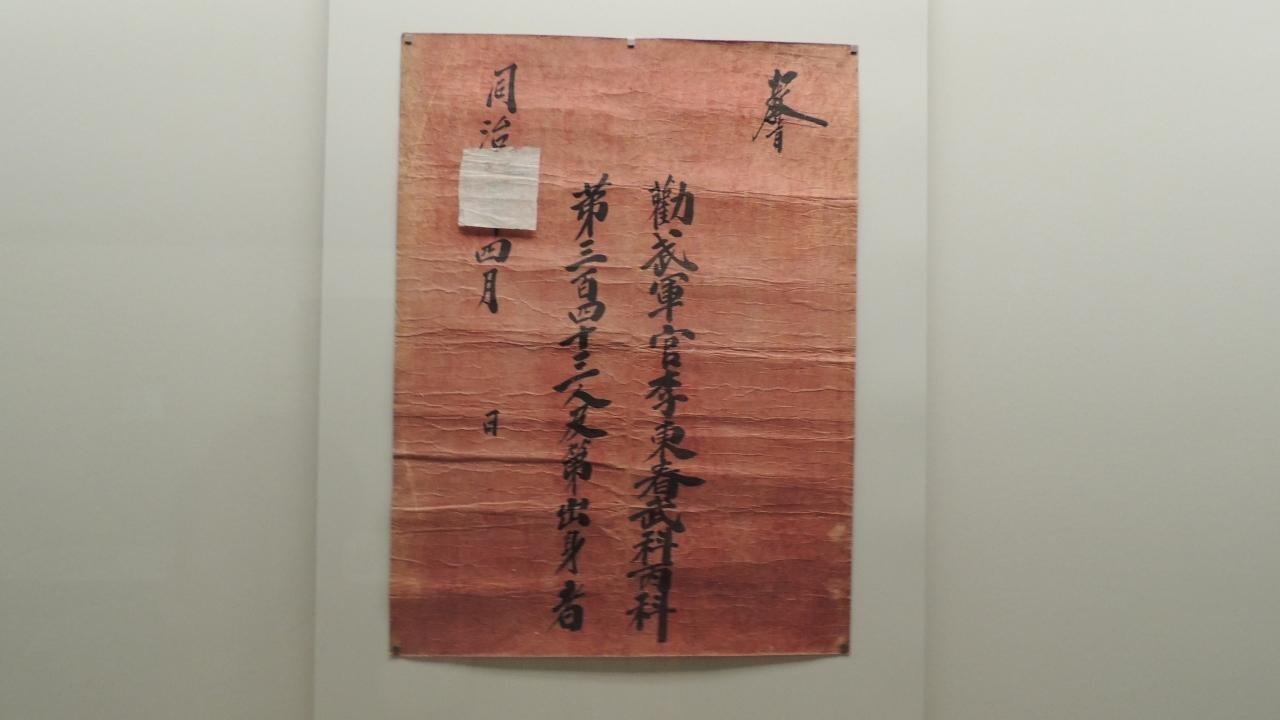 敎旨
勸武軍官李東春武科丙科
第三百四十三人及第出身者
同治 四月 日